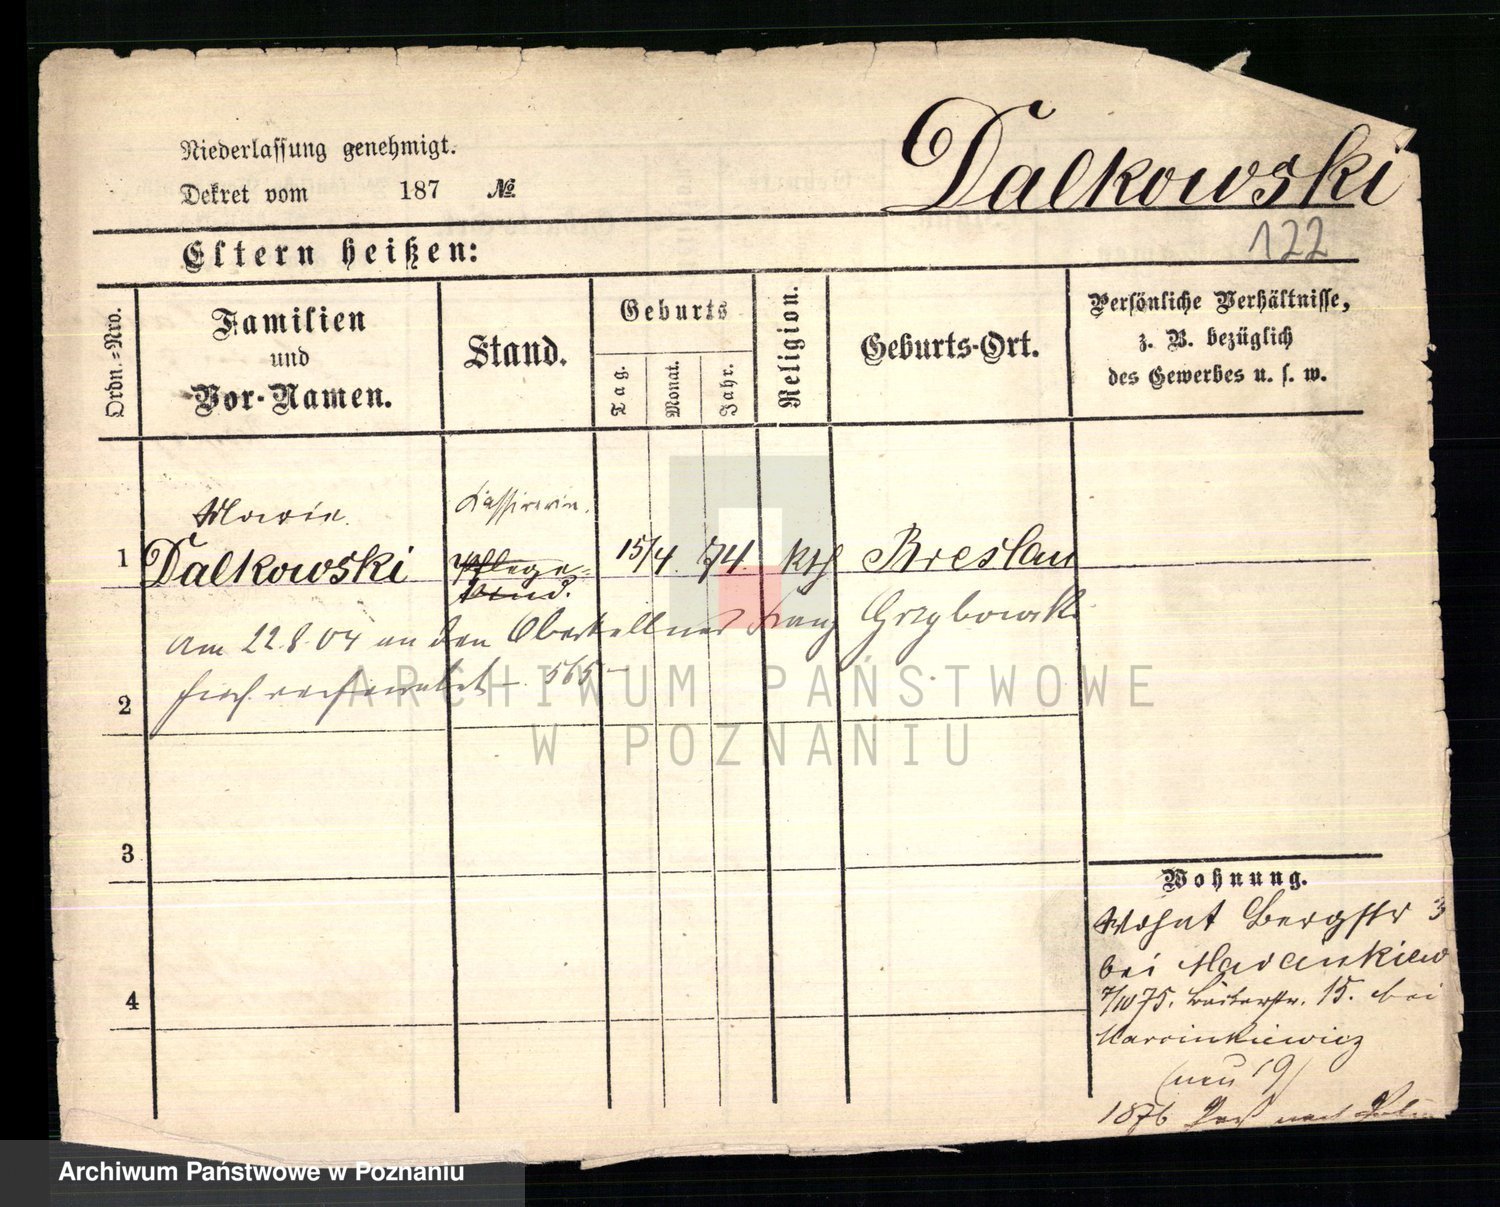 Niederlassung genehmigt.
Dekret vom 187 №
Dalkowski
122
Eltern heißen:
Ordn.-Nro.
Familien
und
Vor-Namen.
Stand.
Geburts
Tag.
Monat.
Jahr.
Religion.
Geburts-Ort.
Persönliche Verhältnisse,
z. B. bezüglich
des Gewerbes u. s. w.
Marie
Kassirerin.
1 Dalkowski Pflege- 15/4 74. kth Breslau
kind.
Am 22.8.04 an den Oberkellner Franz Grzybowski
hier verheiratet 565
2
3
4
Wohnung.
Wohnt Bergstr 3
bei
7/10 75. 15. bei
Marcinkiewicz
(neu 19)
1876 nach
ARCHIWUM PAŃSTWOWE
W POZNANIU
Archiwum Państwowe w Poznaniu